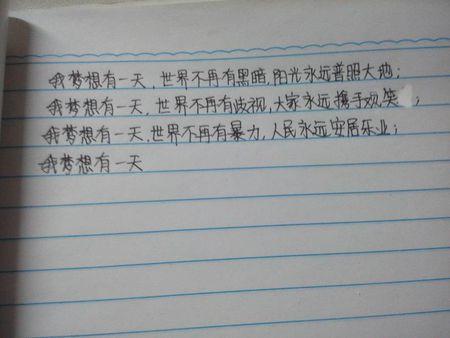 我梦想有一天，世界不再有黑暗，阳光永远普照大地；
我梦想有一天，世界不再有歧视，大家永远携手欢笑；
我梦想有一天，世界不再有暴力，人民永远安居乐业；
我梦想有一天